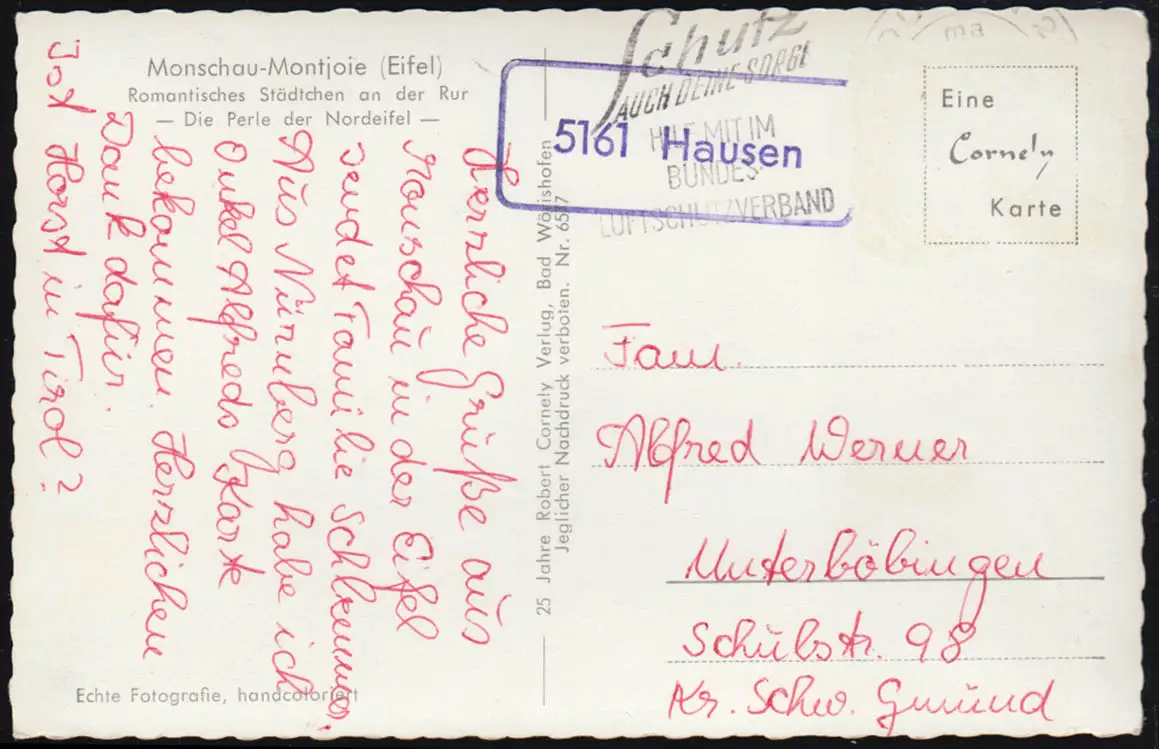 Monschau-Montjoie (Eifel)
Romantisches Städtchen an der Rur
— Die Perle der Nordeifel —
Herzliche Grüße aus
Monschau in der Eifel
sendet Familie Schlemmer.
Aus Nürnberg habe ich
Onkel Alfreds Karte
bekommen. Herzlichen
Dank dafür.
Ist Horst in Tirol?
Echte Fotografie, handcoloriert
25 Jahre Robert Cornely Verlug, Bad Wörishofen
Jeglicher Nachdruck verboten. Nr.
Schutz
AUCH DEINE SORGE
HILF MIT IM
BUNDES-
LUFTSCHUTZVERBAND
5161 Hausen
Eine
Cornely
Karte
Fam.
Alfred Werner
Unterböbingen
Schulstr. 98
Kr. Schw. Gmünd